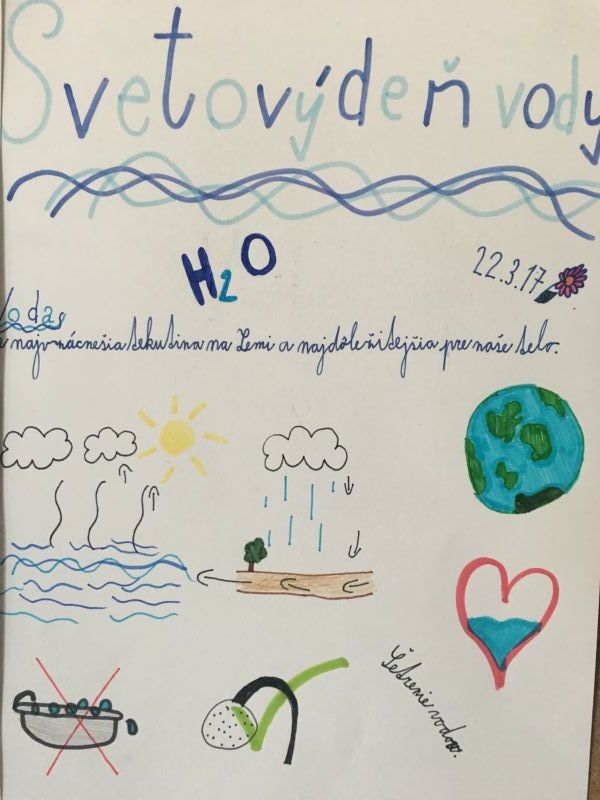 Svetový deň vody
H2O
22.3.17
Voda
najvzácnešia tekutina na Zemi a najdôležitejšia pre naše telo.
Šetrenie vodou.